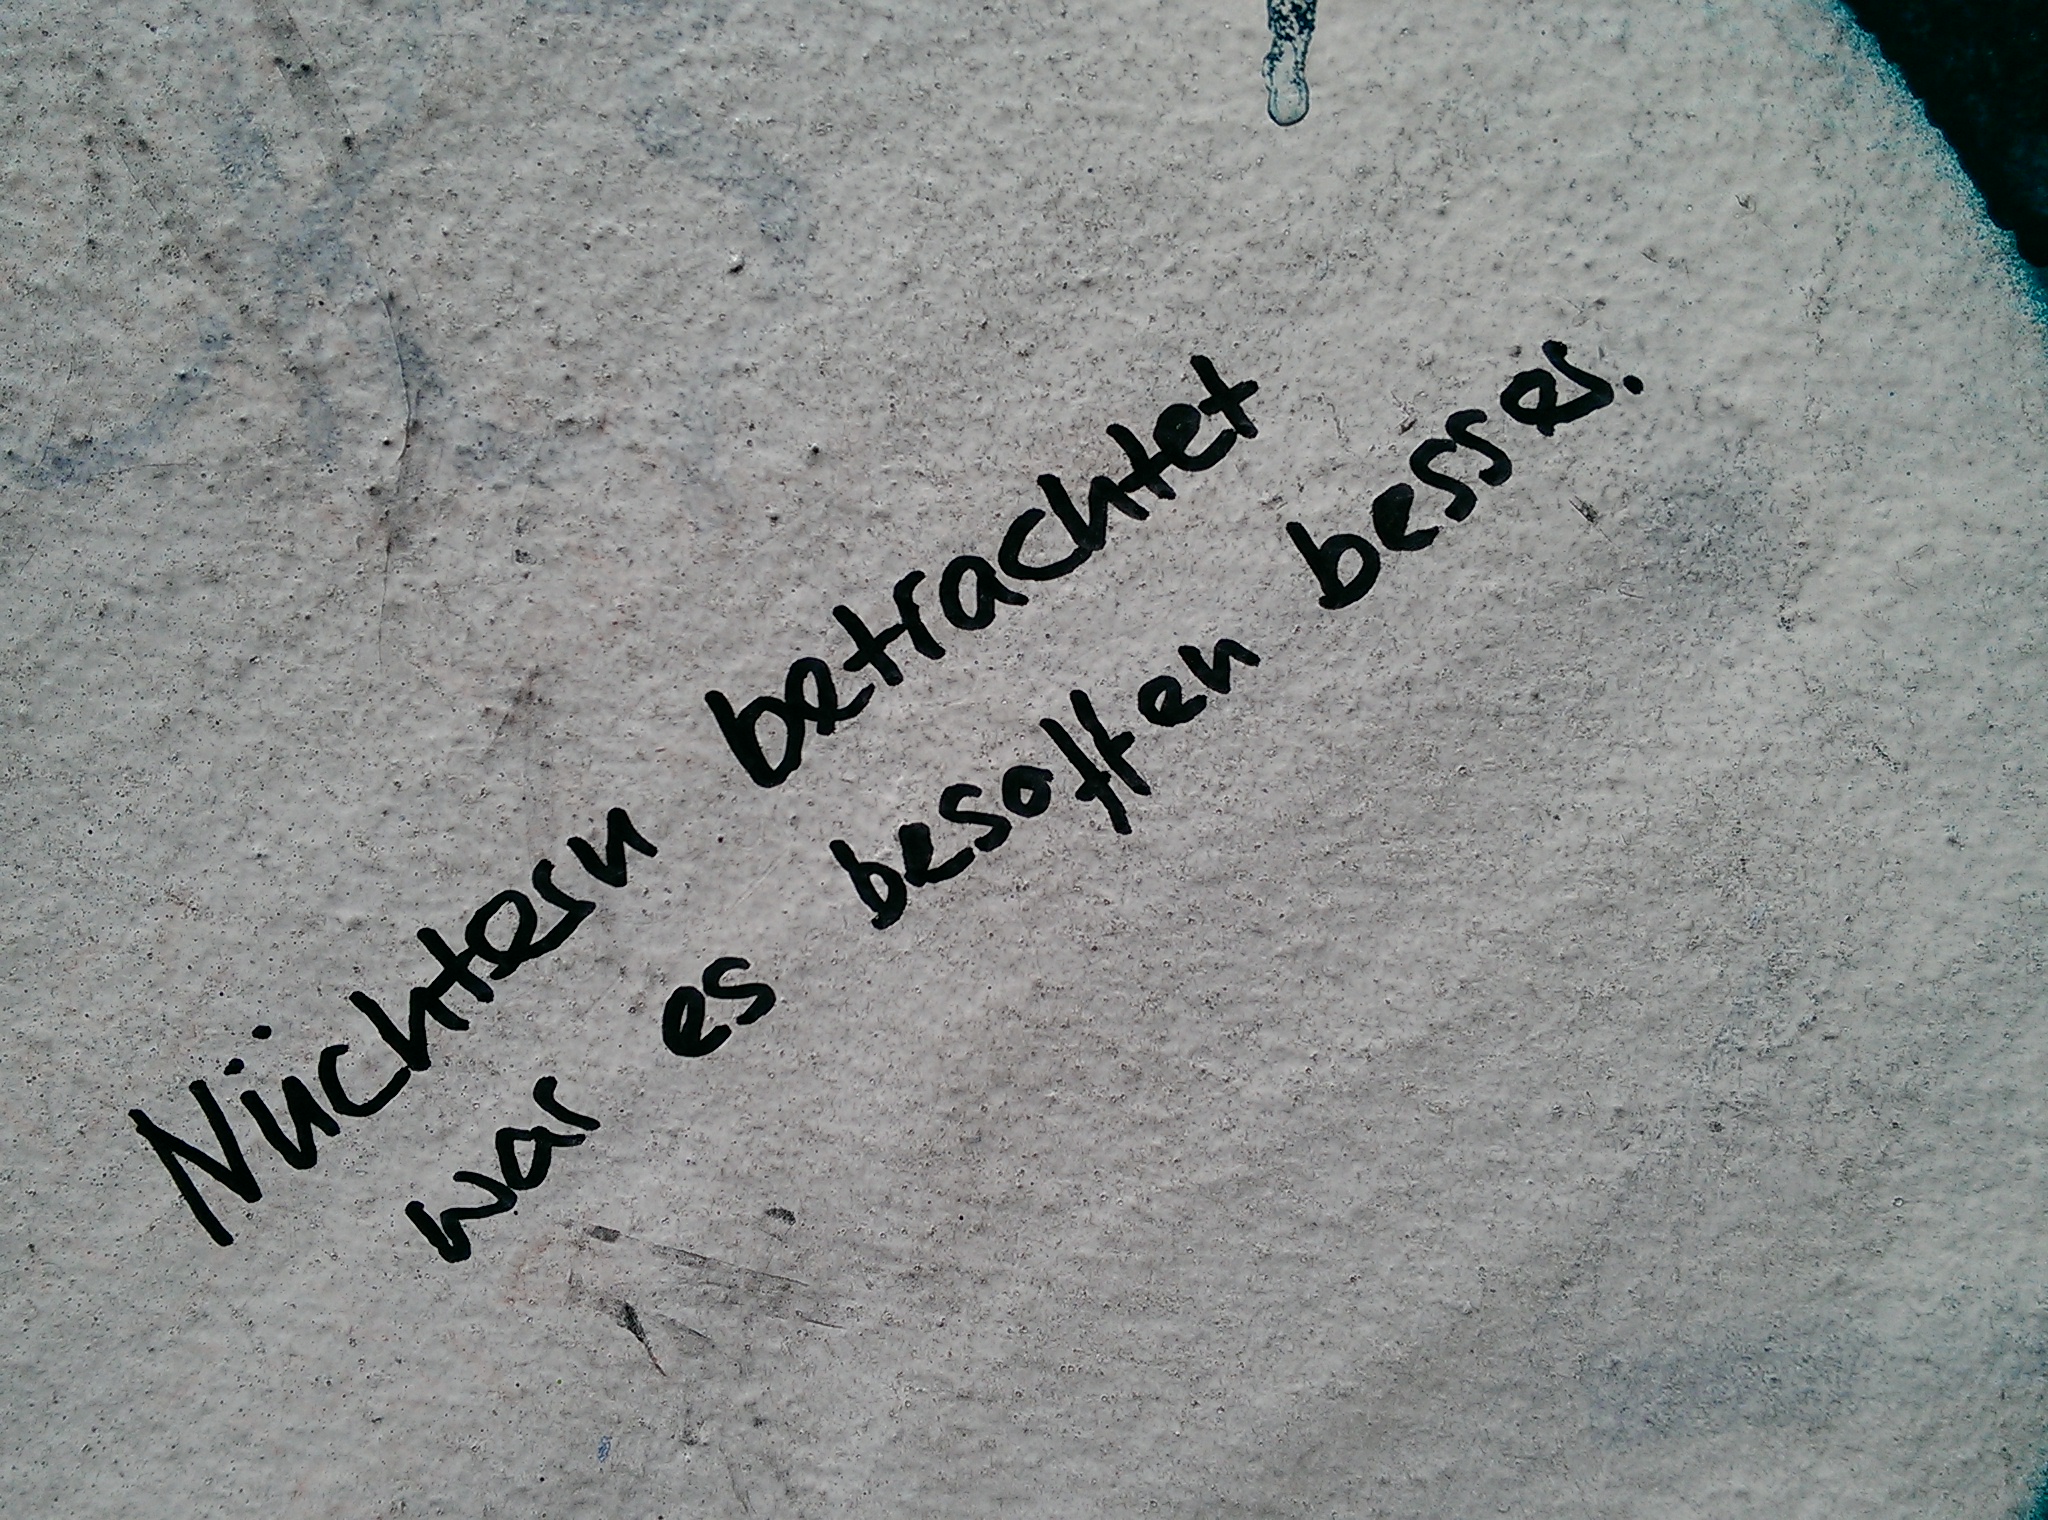 Nüchtern betrachtet
war es besoffen besser.